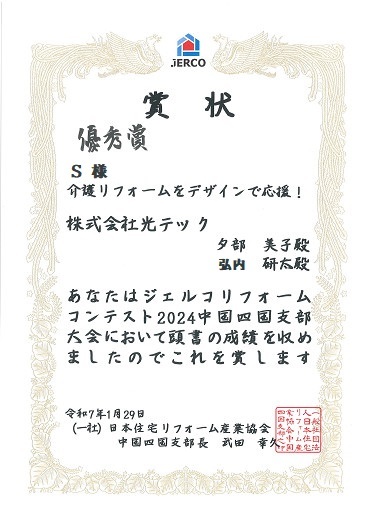 JERCO
賞状
優秀賞
S 様
介護リフォームをデザインで応援！
株式会社光テック
夕部 美子殿
弘内 研太殿
あなたはジェルコリフォーム
コンテスト2024中国四国支部
大会において頭書の成績を収め
ましたのでこれを賞します
令和7年1月29日
(一社)日本住宅リフォーム産業協会
中国四国支部長 武田 幸久